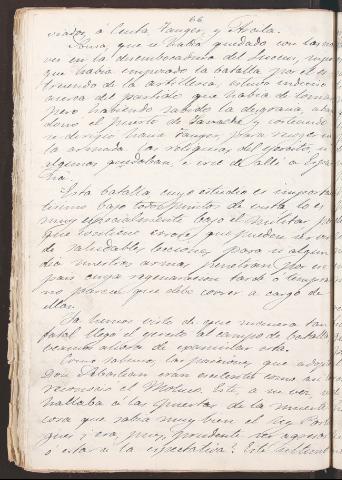 66
viados á Ceuta, Tanger, y Arcila.
Sosa, que se habia quedado con las na-
ves en la desembocadura del Luccus, supo
que habia empezado la batalla por el es-
truendo de la artilleria, estuvo indeciso
acerca del partido que habia de tomar
pero habiendo sabido la desgracia, aban-
donó el puerto de y costeando
se dirigió hacia Tanger, para recoger en
la armada las reliquias del ejercito, si
algunas quedaban, é irse de alli á Espa-
ña.
Esta batalla cuyo estudio es importan-
tísimo bajo todos puntos de vista lo es
muy especialmente bajo el militar por-
que contiene errores que pueden servir
de saludables lecciones, para si algun
dia nuestras armas, penetran por un
pais cuya regeneracion tarde ó temprano
no parece que debe correr á cargo de
ellas.
Ya hemos visto de que manera tan
fatal llegó el ejercito al campo de batalla
veamos ahora de examinar esta.
Como sabemos, las posiciones que adoptó
Don Sebastian eran excelentes como asi
reconoció el Moluco. Este, á su vez, se
hallaba á las puertas de la muerte
cosa que sabia muy bien el rey Portu-
gues; ¿era, pues, prudente ser agresor
ó estar á la espectativa? Este